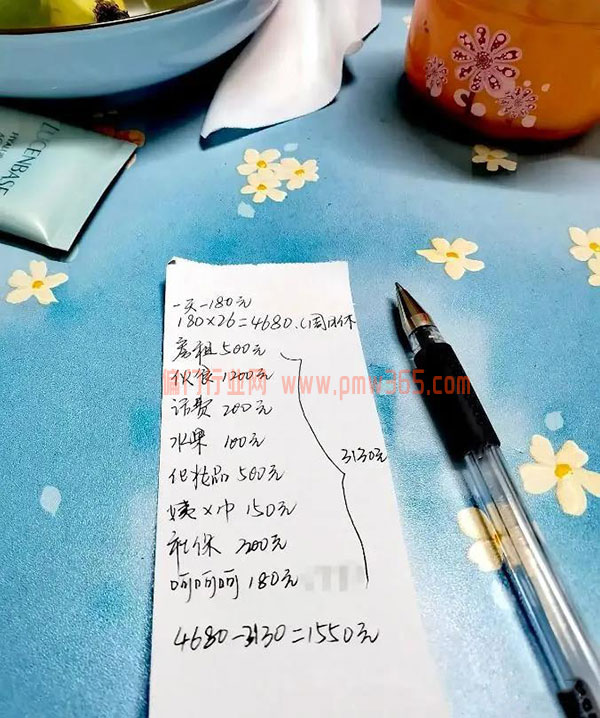 LUCENBASE
一天一180元
180×26=4680.(周日休
房租500元
伙食1200元
偏门行业网 www.pmw365.com
话费 200元
水果 100元
化妆品 500元
姨×巾 150元
社保 300元
呵呵呵 180元
3130元
4680-3130=1550元